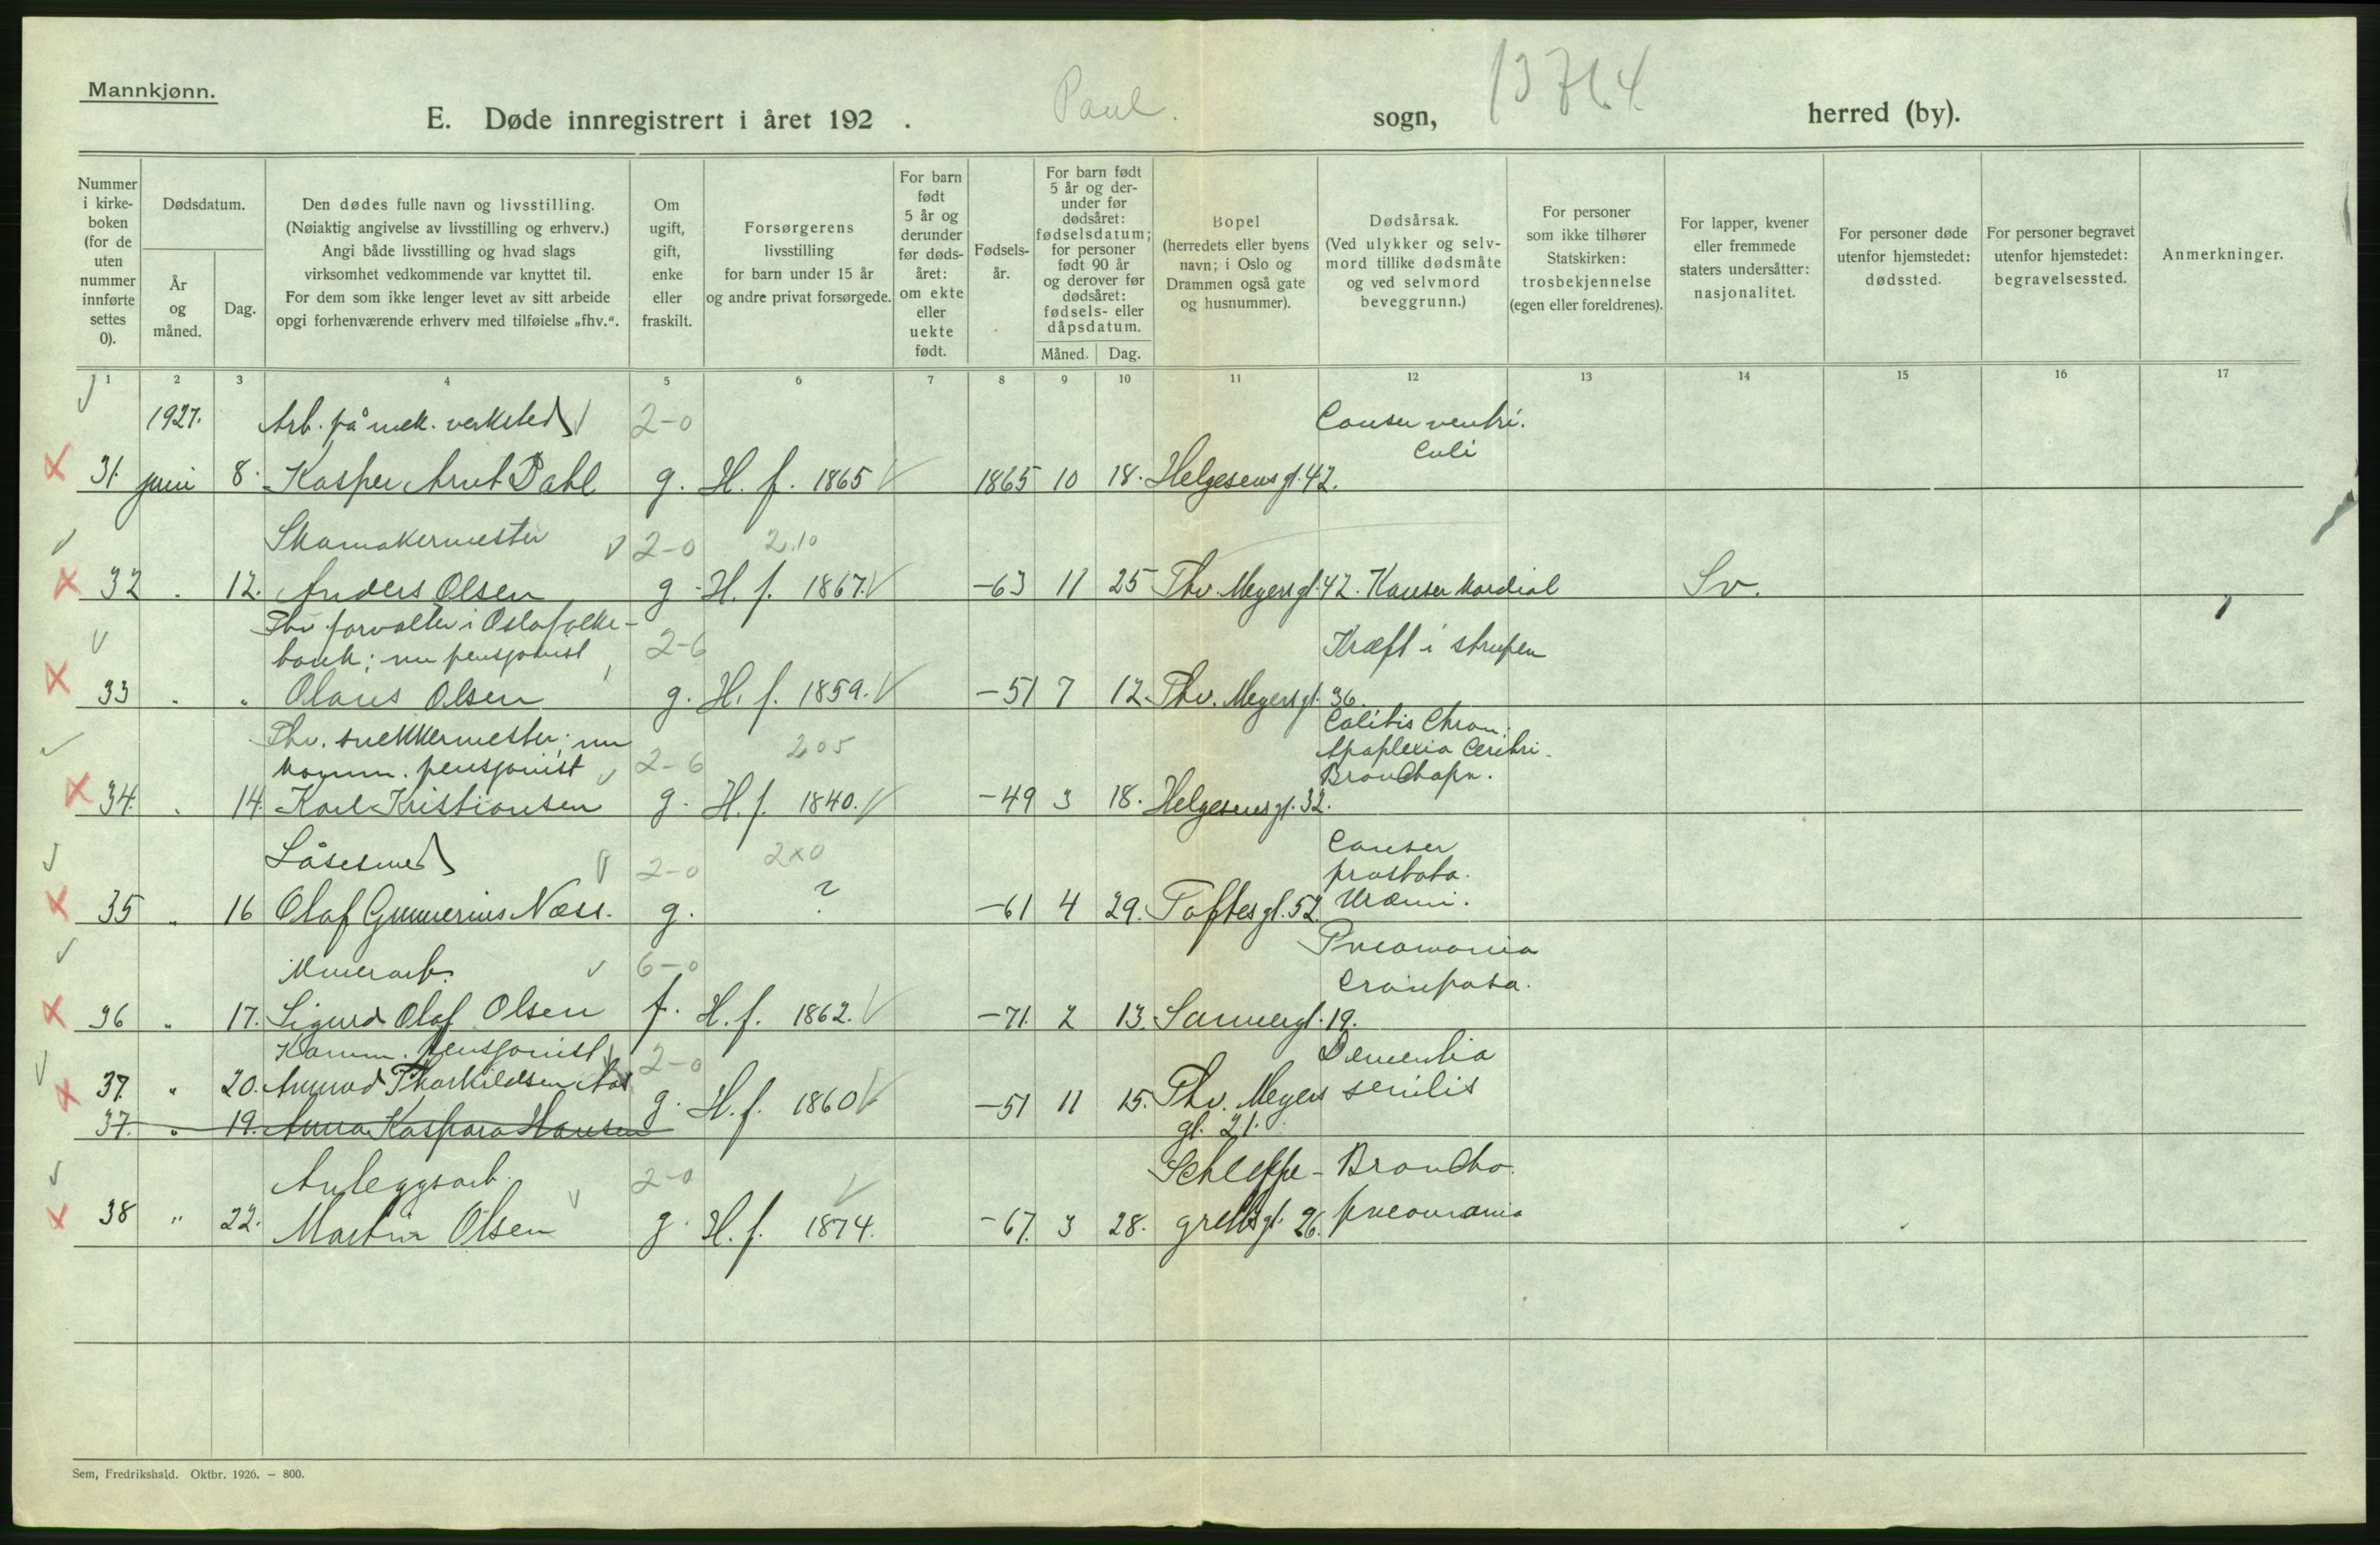 Mannkjønn.
E. Døde innregistrert i året 192 . Paul. sogn, 13764. herred (by).
Nummer i kirke-boken (for de uten nummer innførte settes 0).
Dødsdatum.
År og måned.
Dag.
Den dødes fulle navn og livsstilling.
(Nøiaktig angivelse av livsstilling og erhverv.)
Angi både livsstilling og hvad slags
virksomhet vedkommende var knyttet til.
For dem som ikke lenger levet av sitt arbeide
opgi forhenværende erhverv med tilføielse „fhv.“.
Om ugift, gift, enke eller fraskilt.
Forsørgerens
livsstilling
for barn under 15 år
og andre privat forsørgede.
For barn født 5 år og derunder før døds-året: om ekte eller uekte født.
Fødsels-år.
For barn født 5 år og der-under før dødsåret: fødselsdatum; for personer født 90 år og derover før dødsåret: fødsels- eller dåpsdatum.
Måned. Dag.
Bopel
(herredets eller byens
navn; i Oslo og
Drammen også gate
og husnummer).
Dødsårsak.
(Ved ulykker og selv-
mord tillike dødsmåte
og ved selvmord
beveggrunn.)
For personer
som ikke tilhører
Statskirken:
trosbekjennelse
(egen eller foreldrenes).
For lapper, kvener
eller fremmede
staters undersåtter:
nasjonalitet.
For personer døde
utenfor hjemstedet:
dødssted.
For personer begravet
utenfor hjemstedet:
begravelsessted.
Anmerkninger.
1 2 3 4 5 6 7 8 9 10 11 12 13 14 15 16 17
1927. Arb. på mek. verksted 2-0 Canser ventri.
culi
31. juni 8. Kasper Arnt Dahl g. H. f. 1865 1865 10 18. Helgesens gt. 42.
Skomakermester 2-0 2.10
32 . 12. Anders Olsen g. H. f. 1867. -63 11 25 Thv. Meyers gt. 42. Kanser kardial Sv.
Fhv. forvalter i Oslo folke-
bank; nu pensjonist 2-6 Kræft i strupen
33 . " Olaus Olsen g. H. f. 1859. -51 7 12. Thv. Meyers gt. 36.
Fhv. snekkermester; nu
komm. pensjonist 2-6 205 Colitis Chron.
Apoplexia Cerebri.
Bronchopn.
34. . 14. Karl Kristiansen g. H. f. 1840. -49 3 18. Helgesens gt. 32.
Låsesmed 2-0 2x0 Canser
prostata.
35 " 16 Olaf Gunnerius Næss. g. ? -61 4 29. Toftes gt. 52. Uræmi.
Murerarb. 6-0 Pneomonia
Crouposa.
36 " 17. Sigurd Olaf Olsen f. H. f. 1862. -71. 2 13. Sannergt. 19.
Komm. pensjonist 2-0 Dementia
37. " 20. Amund Thorkildsen Aas g. H. f. 1860 -51 11 15. Thv. Meyers senilis
37. " 19. Anna Kaspara Hansen gt. 21.
Anleggsarb. 2-0 Schleppe- Broncho.
38 " 22. Martin Olsen g. H. f. 1874. -67. 3 28. grells gt. 26. pneomonia
Sem, Fredrikshald. Oktbr. 1926. — 800.